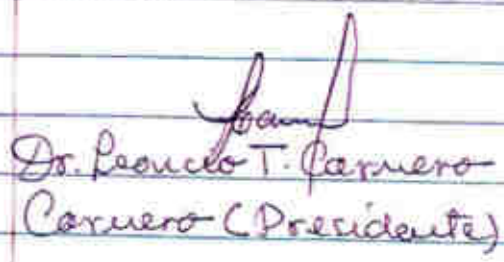 Dr. Leoncio T. Carnero
Carnero (Presidente)